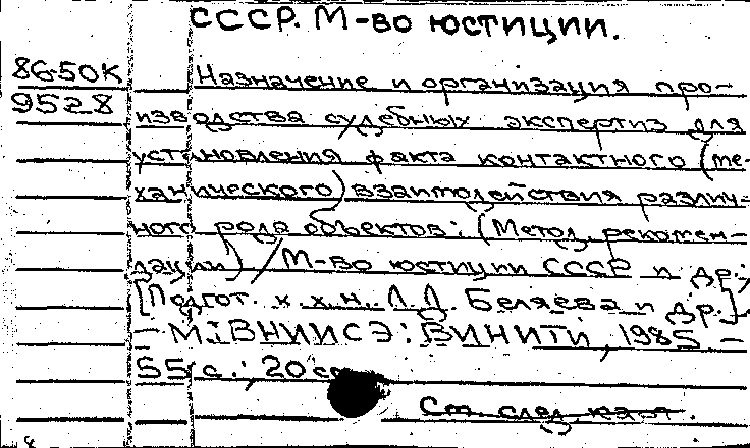 СССР. М-во юстиции.
86-50К
9528
Назначение и организация про-
изводства судебных экспертиз для
установления факта контактного (ме-
ханического) взаимодействия различ-
ного рода объектов: (Метод. рекомен-
дации) / М-во юстиции СССР и др.;
[Подгот. к.х.н. Л.Д. Беляева и др.].
– М.: ВНИИСЭ: ВИНИТИ, 1985. –
55 с.; 20 см.
См. след. карт.